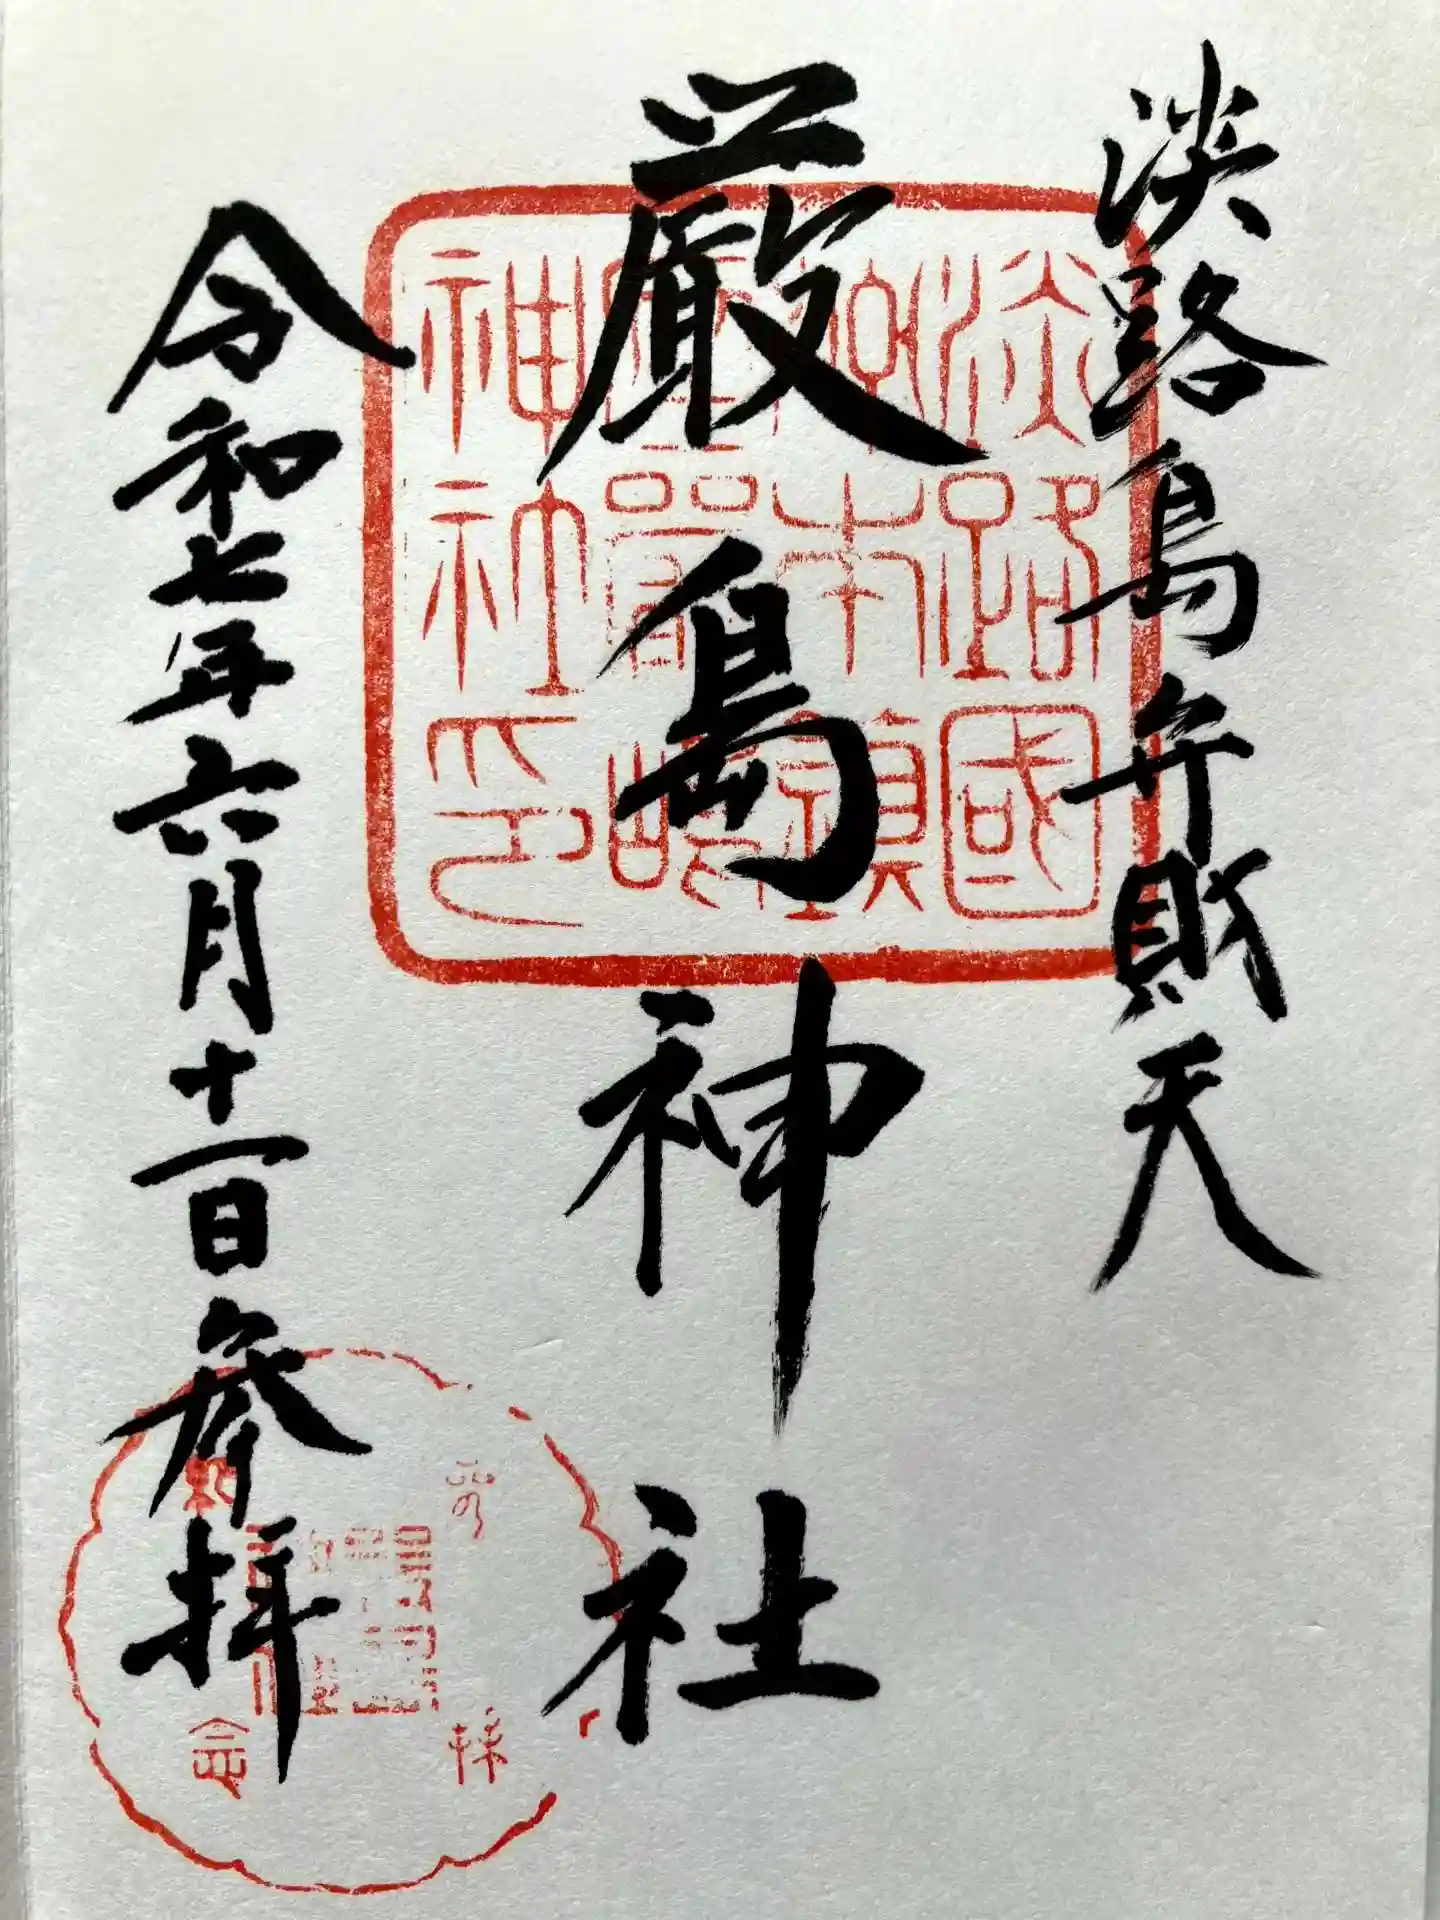 淡路島弁財天
厳島神社
令和七年六月十一日参拝
淡路國
洲本鎮
座嚴嶋
神社印
参拜
念